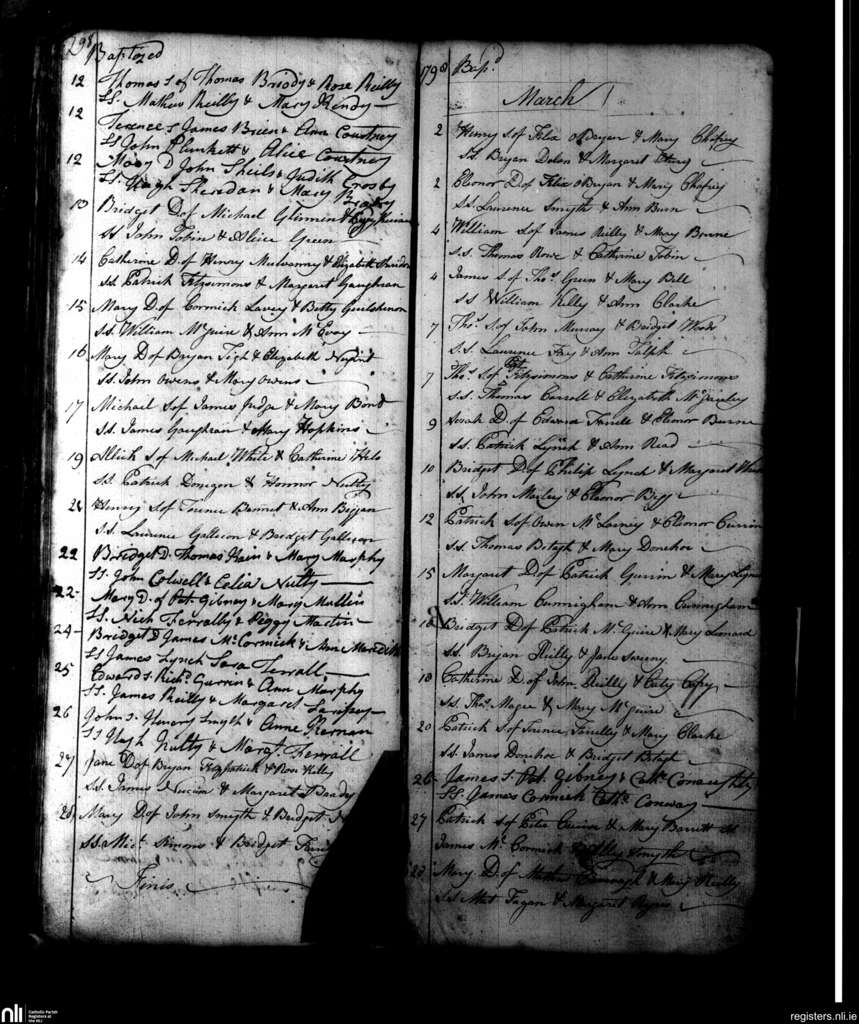 1798
Baptized
12 Thomas S of Thomas Briody & Rose Reilly
SS. Mathew Reilly & Mary
12 Terence S James Brien & Ann Courtney
SS John Plunkett & Alice Courtney
12 Mary D John Sheils & Judith Crosby
SS. Hugh Sheredan & Mary Brady
13 Bridget D of Michael
SS John Tobin & Alice Green
14 Catherine D. of Henry Mulvanny & Elizabeth Sheridan
SS Patrick Fitzsimons & Margaret Gaughran
15 Mary D. of Cormick Lavey & Betty
SS. William McGuire & Ann McEvoy
16 Mary D of Bryan Tigh & Elizabeth
SS. John Owens & Mary Owens
17 Michael S of James Judge & Mary Bond
SS. James Gaughran & Mary Hopkins
19 S of Michael White & Catherine
SS. Patrick Dunigan & Honnor Nulty
21 Henry S of Terence Bennet & Ann Biggan
S.S. Laurence Galligan & Bridget Galligan
22 Bridget D. Thomas & Mary Murphy
SS. John Colwell & Celia Nulty
22 Mary D. of Pat. Gibney & Mary Mullin
SS. Nich Ferrally & Peggy Martin
24 Bridget D James McCormick & Ann Meredith
SS James Lynch Sara Ferrall
25 Edward S. Richd. Gurrin & Ann Murphy
SS. James Reilly & Margaret
26 John S. Henery Smyth & Anne Kernan
SS Hugh Nulty & Margt. Ferrall
27 Jane D of Bryan Fitzpatrick & Rose Kelly
SS. James & Margaret Brady
28 Mary D of John Smyth & Bridget
SS. Michl. Simons & Bridget
Finis
1798 Bapd.
March
2 Henry S of Felix O'Bryan & Mary
SS Bryan Dolan & Margaret
2 Elenor D of Felix O'Bryan & Mary
S.S. Laurence Smyth & Ann Burn
4 William S of James Reilly & Mary Burne
S.S. Thomas Rowe & Catherine Tobin
4 James S of Thos. Green & Mary Bell
SS William Kelly & Ann Clarke
7 Thos. S of John Murray & Bridget Woods
S.S. Laurence Fay & Ann
7 Thos. S of Fitzsimons & Catherine Fitzsimons
S.S. Thomas Carrell & Elizabeth
9 Sarah D. of Edward Farrell & Elenor Burne
SS. Patrick Lynch & Ann Read
10 Bridget D of Philip Lynch & Margaret
SS John & Eleonor
12 Patrick S of Owen & Elenor Currin
SS. Thomas Betagh & Mary Donohoe
15 Margaret D of Patrick Gurrin & Mary Lynch
S.S. William Cunnigham & Ann Cunnigham
18 Bridget D of Patrick McGuire & Mary Lenard
SS. Bryan Reilly & Jane Sweeny
18 Catherine D of John Reilly & Caty
SS. Thos. Magee & Mary McGuire
20 Patrick S of Terence Farrelly & Mary Clarke
SS James Donohoe & Bridget Betagh
26 James S. Pat. Gibney & Cathe. Conaughty
SS. James Cormick Cathe. Conway
27 Patrick S of Peter & Mary Barrett SS
James McCormick & Smyth
28 Mary D of Mathew & Mary Reilly
SS Matt Fagan & Margaret
nli
Catholic Parish
Registers at
the NLI
registers.nli.ie